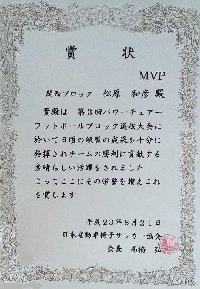 賞 状
MVP
関西ブロック 松原 和彦 殿
貴殿は 第3回パワーチェアー
フットボールブロック選抜大会に
於いて日頃の練習の成果を十分に
発揮されチームの勝利に貢献する
素晴らしい活躍をされました
よってここにその栄誉を讃えこれ
を賞します
平成23年8月31日
日本電動車椅子サッカー協会
会長 高橋 弘